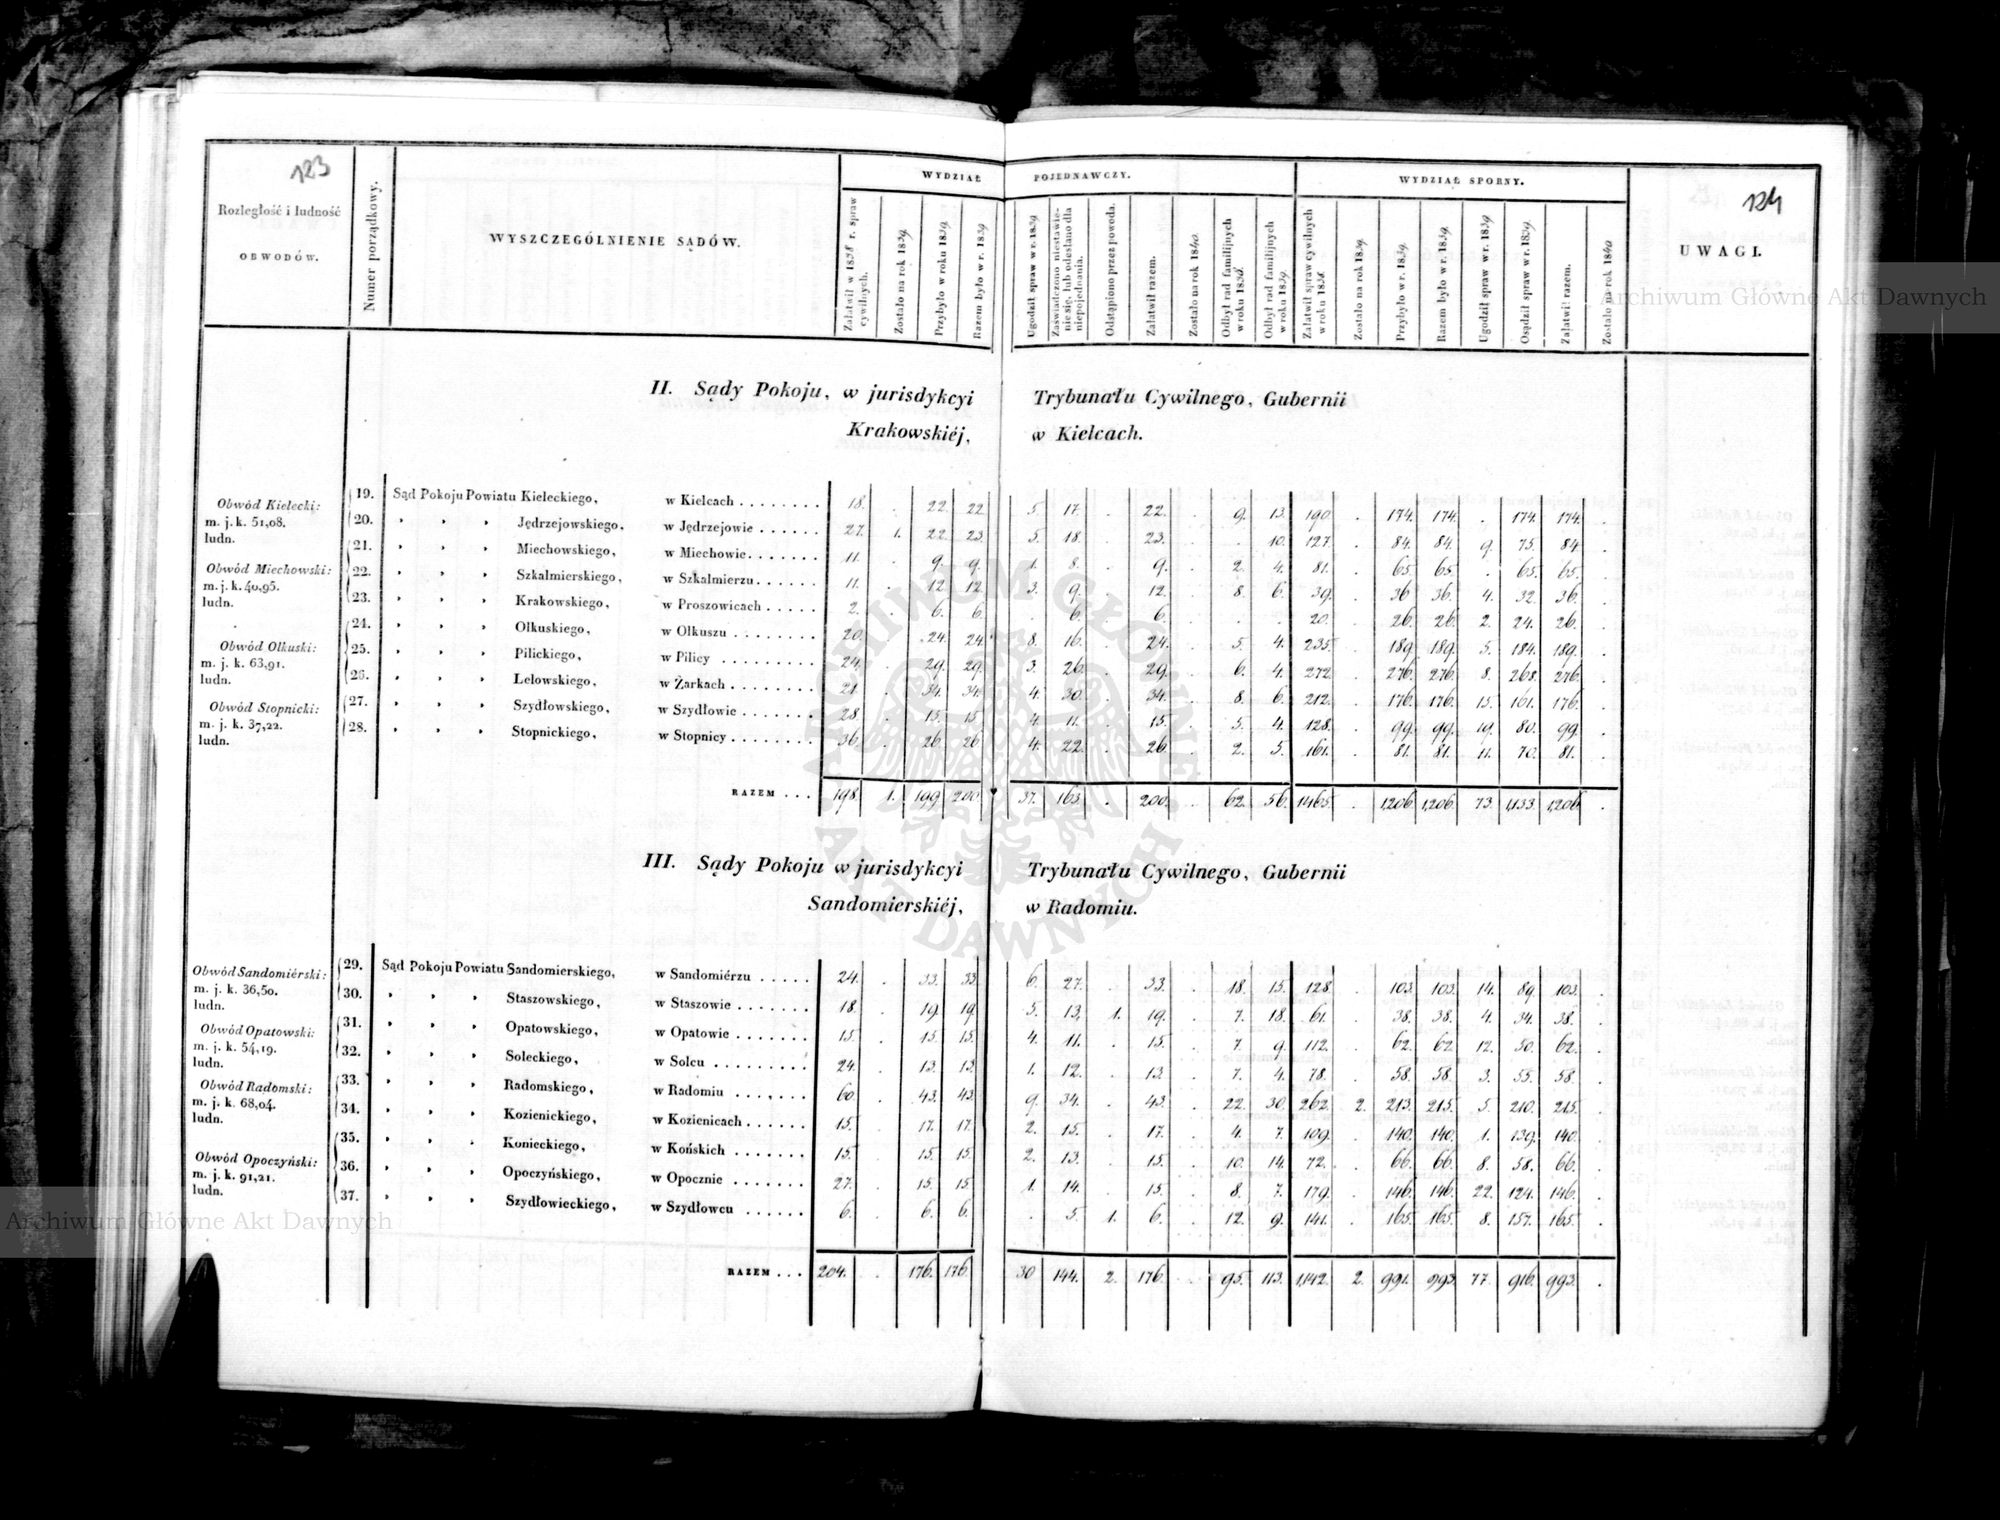 123
124
Rozległość i ludność
OBWODÓW.
Numer porządkowy.
WYSZCZEGÓLNIENIE SĄDÓW.
WYDZIAŁ POJEDNAWCZY.
Załatwił w 1838 r. spraw cywilnych.
Zostało na rok 1839.
Przybyło w roku 1839.
Razem było w r. 1839
Ugodził spraw w r. 1839
Zaświadczono niestawienie się, lub odesłano dla niepojednania.
Odstąpiono przez powoda.
Załatwił razem.
Zostało na rok 1840.
Odbył rad familijnych w roku 1838.
Odbył rad familijnych w roku 1839.
WYDZIAŁ SPORNY.
Załatwił spraw cywilnych w roku 1838.
Zostało na rok 1839.
Przybyło w r. 1839.
Razem było w r. 1839.
Ugodził spraw w r. 1839
Osądził spraw w r. 1839.
Załatwił razem.
Zostało na rok 1840
UWAGI.
II. Sądy Pokoju, w jurisdykcyi Trybunału Cywilnego, Gubernii
Krakowskiéj, w Kielcach.
Obwód Kielecki:
m. j. k. 51,08.
ludn.
Obwód Miechowski:
m. j. k. 40,95.
ludn.
Obwód Olkuski:
m. j. k. 63,91.
ludn.
Obwód Stopnicki:
m. j. k. 37,22.
ludn.
19. Sąd Pokoju Powiatu Kieleckiego, w Kielcach 18. . 22. 22 5. 17 . 22. . 9. 13. 190. . 174. 174. . 174. 174. .
20. " " " Jędrzejowskiego, w Jędrzejowie 27. 1. 22. 23. 5. 18. . 23. . . 10. 127. . 84. 84. 9. 75. 84 .
21. " " " Miechowskiego, w Miechowie 11. . 9. 9. 1. 8. . 9. . 2. 4. 81. . 65 65 . 65. 65. .
22. " " " Szkalmierskiego, w Szkalmierzu 11. . 12 12 3. 9. . 12. . 8. 6. 39. . 36 36. 4. 32. 36. .
23. " " " Krakowskiego, w Proszowicach 2. . 6. 6. . 6. . 6. . . . 20. . 26. 26. 2. 24. 26. .
24. " " " Olkuskiego, w Olkuszu 20. . 24. 24. 8. 16. . 24. . 5. 4. 235. . 189. 189. 5. 184. 189. .
25. " " " Pilickiego, w Pilicy 24. . 29. 29. 3. 26. . 29. . 6. 4. 272 . 276. 276. 8. 268. 276. .
26. " " " Lelowskiego, w Żarkach 21. . 34. 34. 4. 30. . 34. . 8. 6. 212. . 176. 176. 15. 161. 176. .
27. " " " Szydłowskiego, w Szydłowie 28. . 15. 15 4. 11. . 15. . 5. 4. 128. . 99. 99. 19. 80. 99. .
28. " " " Stopnickiego, w Stopnicy 36. . 26. 26 4. 22. . 26. . 2. 5. 161. . 81. 81. 11. 70. 81. .
RAZEM . . . 198. 1. 199. 200. 37. 163. . 200. . 62. 56. 1465. . 1,206. 1,206. 73. 1,133. 1,206 .
III. Sądy Pokoju w jurisdykcyi Trybunału Cywilnego, Gubernii
Sandomierskiéj, w Radomiu.
Obwód Sandomiérski:
m. j. k. 36,50.
ludn.
Obwód Opatowski:
m. j. k. 54,19.
ludn.
Obwód Radomski:
m. j. k. 68,04.
ludn.
Obwód Opoczyński:
m. j. k. 91,21.
ludn.
29. Sąd Pokoju Powiatu Sandomierskiego, w Sandomiérzu 24. . 33. 33. 6. 27. . 33. . 18. 15. 128 . 103. 103. 14. 89. 103. .
30. " " " Staszowskiego, w Staszowie 18. . 19. 19. 5. 13. 1. 19. . 7. 18. 61. . 38. 38. 4. 34. 38. .
31. " " " Opatowskiego, w Opatowie 15. . 15. 15. 4. 11. . 15. . 7. 9. 112. . 62. 62. 12. 50. 62. .
32. " " " Soleckiego, w Solcu 24. . 13. 13. 1. 12. . 13. . 7. 4. 78. . 58. 58. 3. 55. 58. .
33. " " " Radomskiego, w Radomiu 60. . 43. 43. 9. 34. . 43. . 22. 30. 262. 2. 213. 215. 5. 210. 215. .
34. " " " Kozienickiego, w Kozienicach 15. . 17. 17. 2. 15. . 17. . 4. 7. 109. . 140. 140. 1. 139. 140. .
35. " " " Konieckiego, w Końskich 15. . 15. 15. 2. 13. . 15. . 10. 14. 72. . 66. 66. 8. 58. 66. .
36. " " " Opoczyńskiego, w Opocznie 27. . 15. 15 1. 14. . 15. . 8. 7. 179. . 146. 146. 22. 124. 146. .
37. " " " Szydłowieckiego, w Szydłowcu 6. . 6. 6. . 5. 1. 6. . 12. 9. 141. . 165. 165. 8. 157. 165. .
RAZEM . . . 204. . 176. 176. 30 144. 2. 176. . 95. 113. 1,142. 2. 991. 993. 77. 916. 993. .
ARCHIWUM GŁÓWNE AKT DAWNYCH
Archiwum Główne Akt Dawnych
Archiwum Główne Akt Dawnych